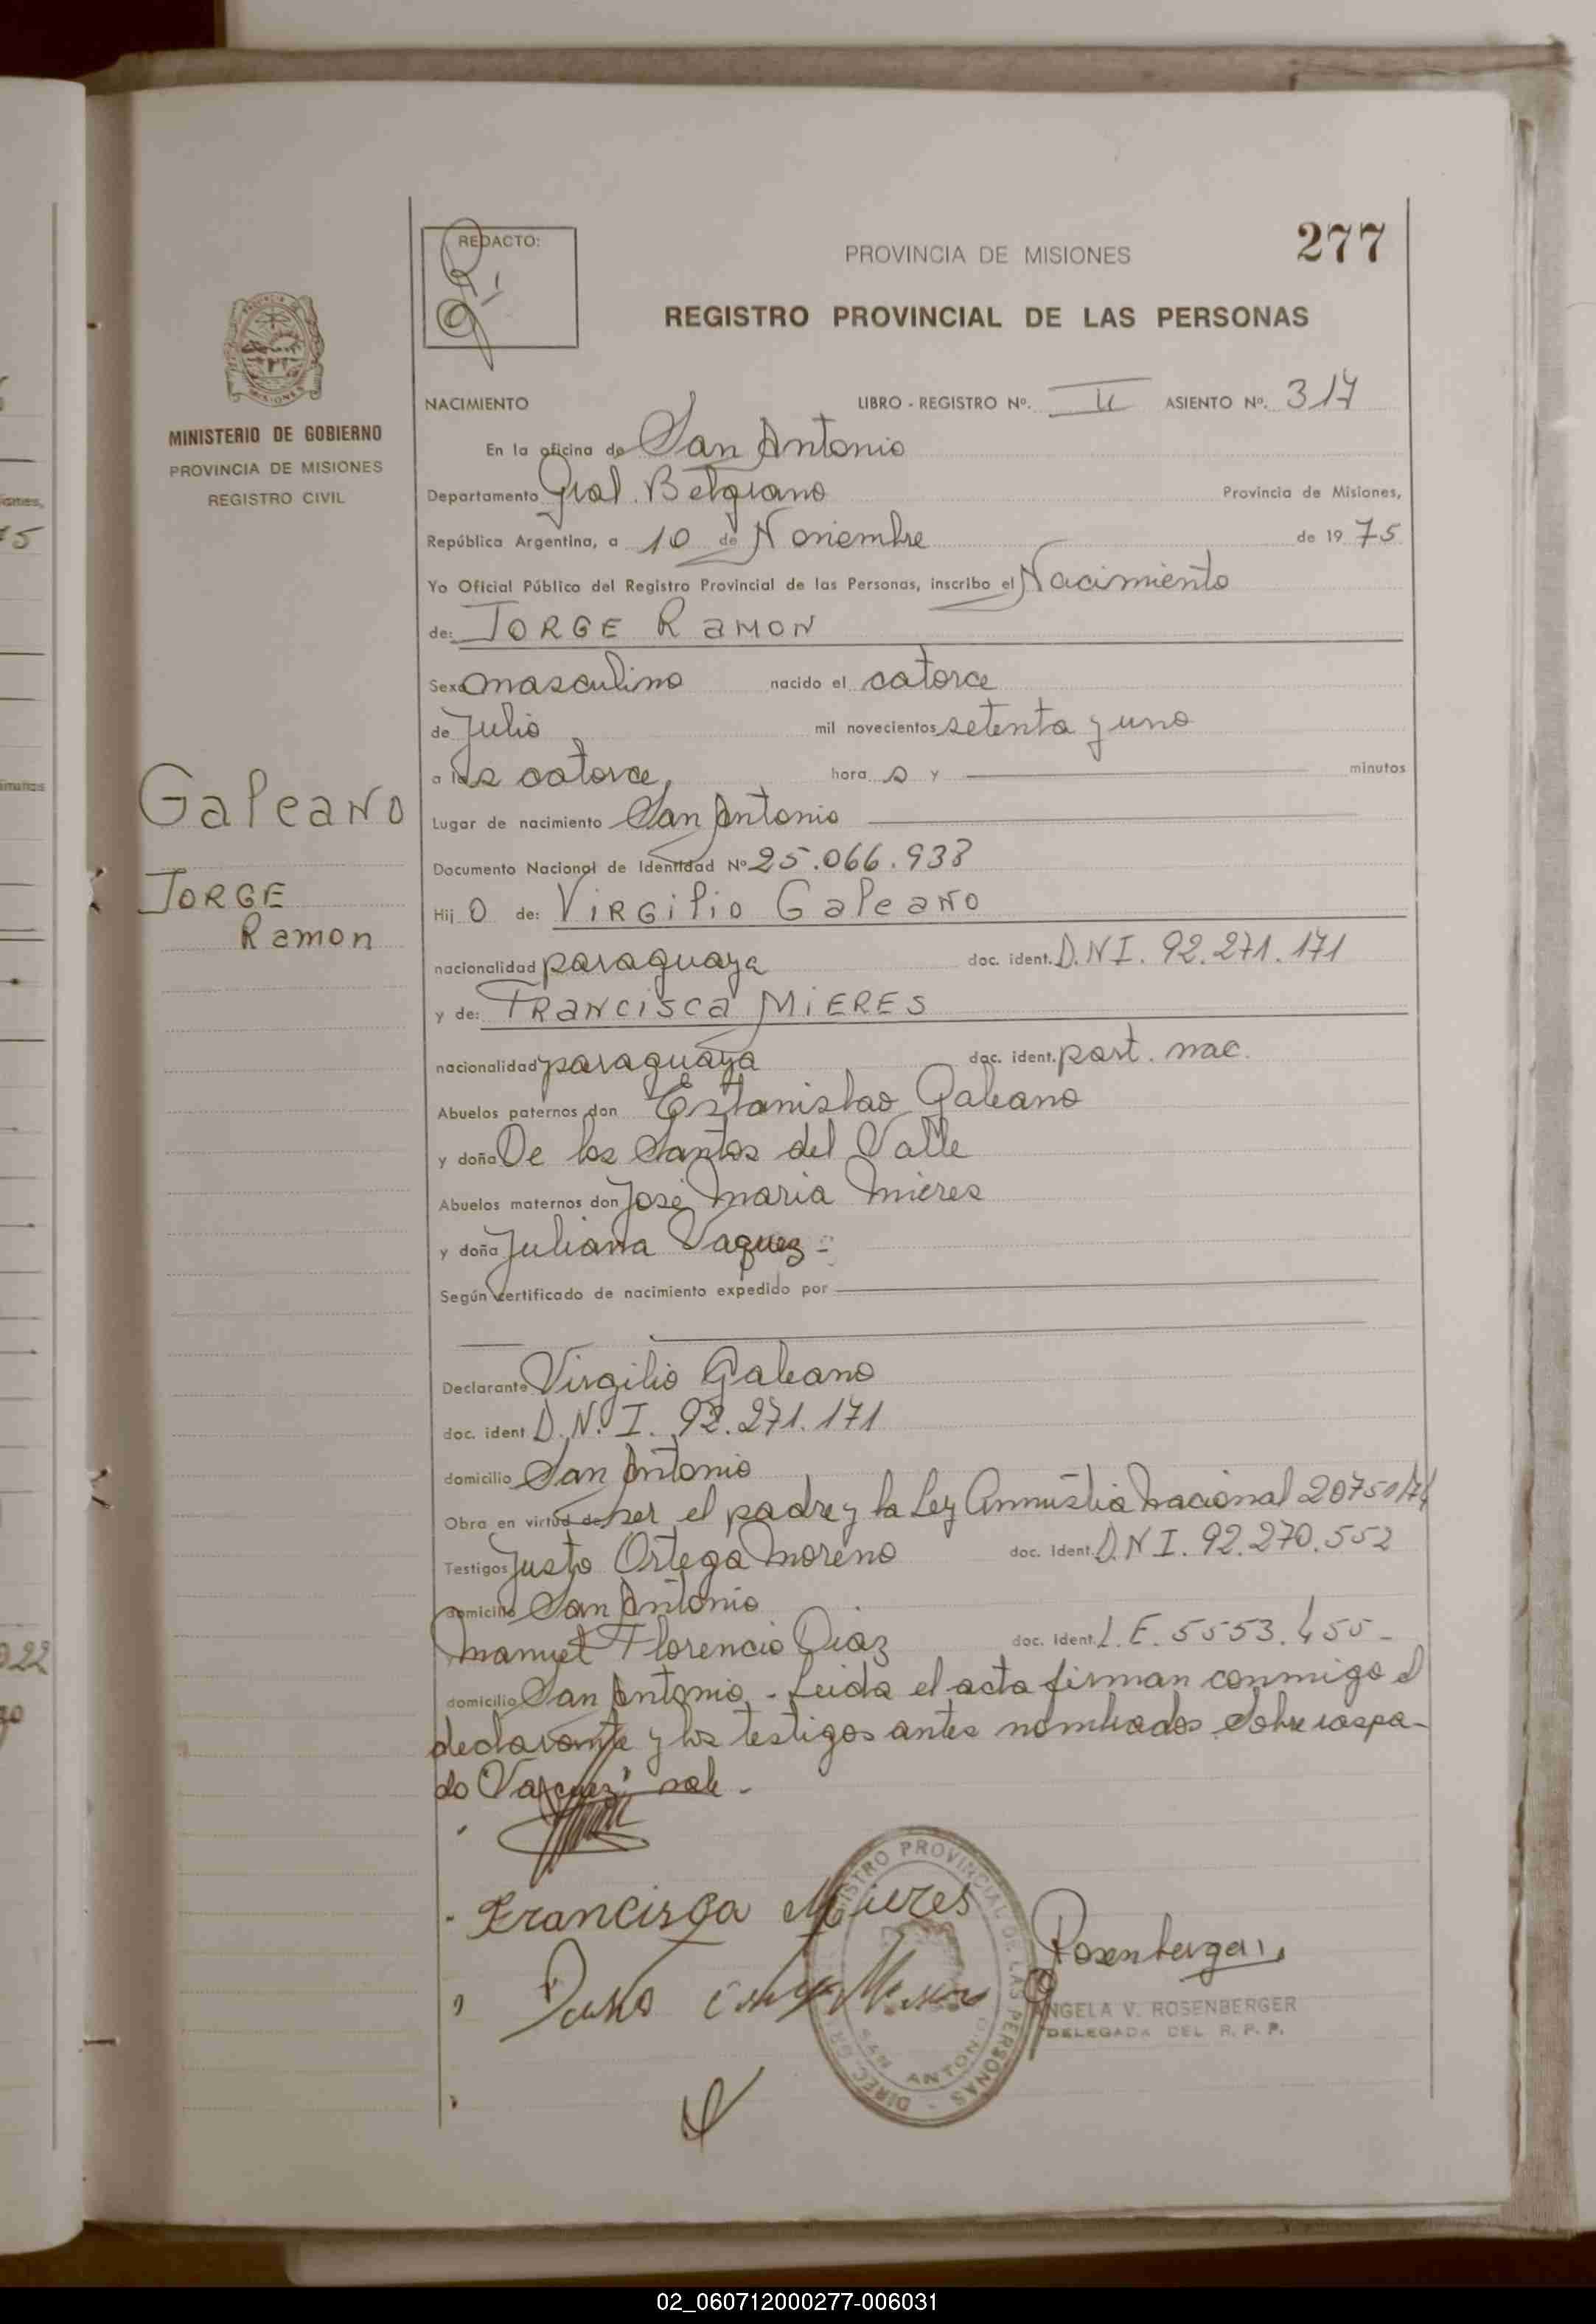 REDACTO:
PROVINCIA DE MISIONES
277
REGISTRO PROVINCIAL DE LAS PERSONAS
MINISTERIO DE GOBIERNO
PROVINCIA DE MISIONES
REGISTRO CIVIL
NACIMIENTO LIBRO - REGISTRO Nº. II ASIENTO Nº. 317
En la oficina de San Antonio
Departamento Gral. Belgrano Provincia de Misiones,
República Argentina, a 10 de Noviembre de 19 75
Yo Oficial Público del Registro Provincial de las Personas, inscribo el Nacimiento
de: JORGE RAMON
Sexo masculino nacido el catorce
de Julio mil novecientos setenta y uno
a las catorce hora s y minutos
Galeano
JORGE
Ramon
Lugar de nacimiento San Antonio
Documento Nacional de Identidad Nº 25.066.938
Hij o de: VIRGILIO GALEANO
nacionalidad paraguaya doc. ident. D.N I. 92.271.171
y de: FRANCISCA MIERES
nacionalidad paraguaya doc. ident. part. nac.
Abuelos paternos don Estanislao Galeano
y doña De los Santos del Valle
Abuelos maternos don José Maria Mieres
y doña Juliana Vaquez -
Según certificado de nacimiento expedido por
Declarante Virgilio Galeano
doc. ident D.N.I. 92.271.171
domicilio San Antonio
Obra en virtud de ser el padre y la Ley Amnistia Nacional 20751/74
Testigos Justo Ortega Moreno doc. Ident. D.N I. 92.270.552
domicilio San Antonio
Manuel Florencio Diaz doc. Ident. L.E. 5553.455-
domicilio San Antonio - Leida el acta firman conmigo el
declarante y los testigos antes nombrados. Sobre raspa-
do "Vazquez" vale -
Francisca Mieres
Rosenberger
ANGELA V. ROSENBERGER
DELEGADA DEL R. P. P.
REGISTRO PROVINCIAL DE LAS PERSONAS
SAN ANTONIO
02_060712000277-006031